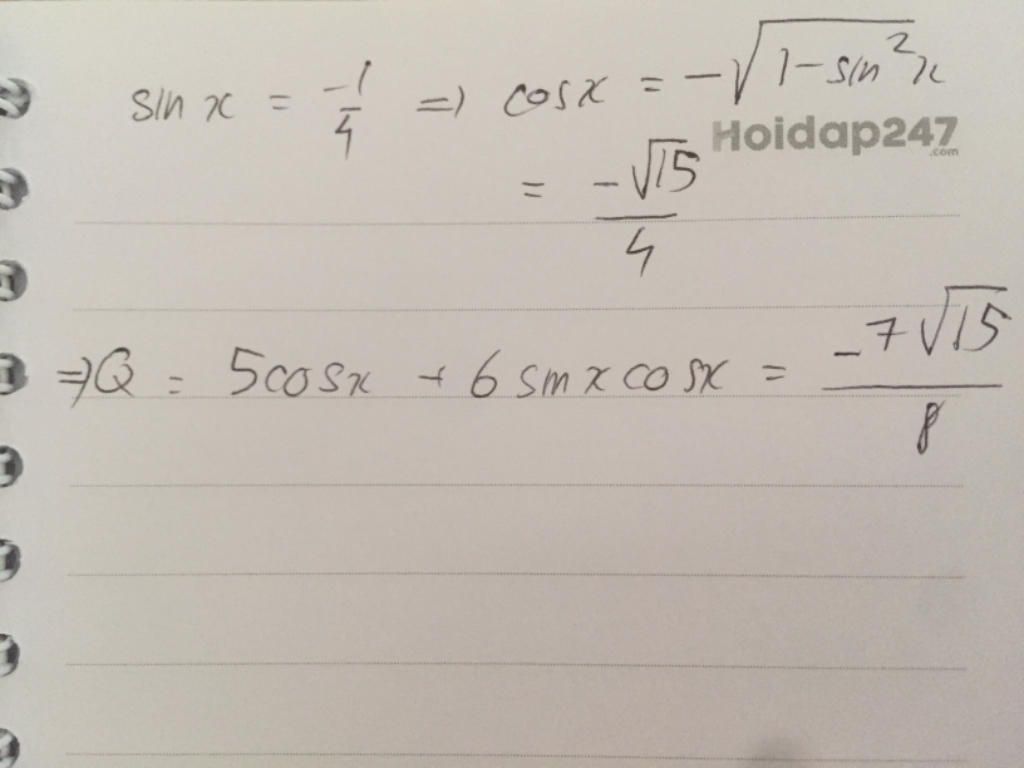 sin x = -1/4 => cosx = -√(1-sin²x)
Hoidap247
.com
= -√15/4
=> Q = 5cosx + 6 sinx cosx = -7√15/8